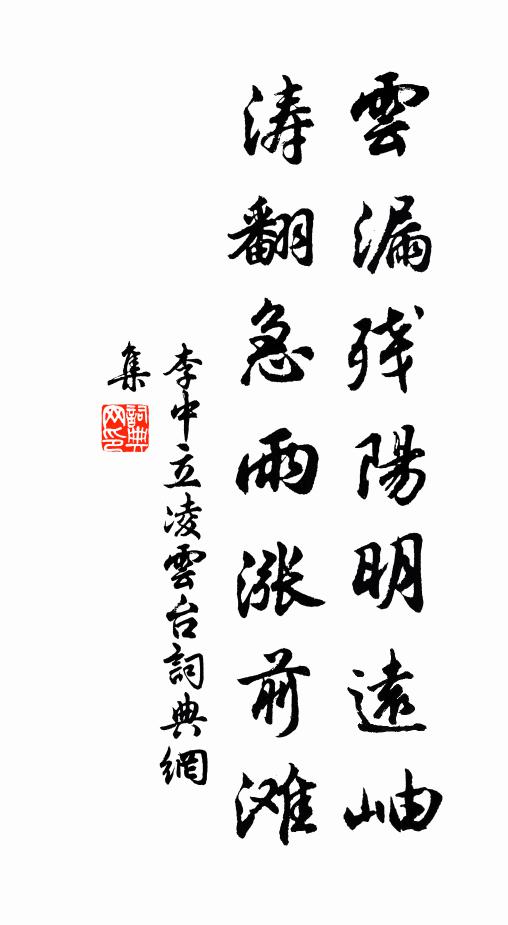 雲漏残陽明遠岫
涛翻急雨漲前滩
李中立凌雲台詞典網
集
詞典
网印